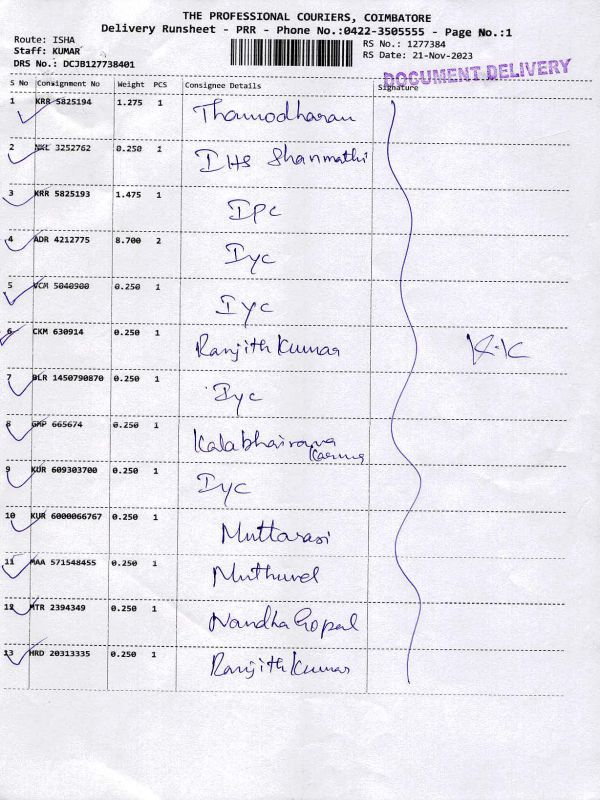 THE PROFESSIONAL COURIERS, COIMBATORE
Delivery Runsheet - PRR - Phone No.:0422-3505555 - Page No.:1
Route: ISHA
Staff: KUMAR
DRS No.: DCJB127738401
RS No.: 1277384
RS Date: 21-Nov-2023
DOCUMENT DELIVERY
S No Consignment No Weight PCS Consignee Details Signature
1 KRR 5825194 1.275 1 Thamodharan
2 NKL 3252762 0.250 1 IHS Shanmathi
3 KRR 5825193 1.475 1 IPC
4 ADR 4212775 8.700 2 Iyc
5 VCM 5040900 0.250 1 Iyc
6 CKM 630914 0.250 1 Ranjith Kumar K.K
7 BLR 1450790870 0.250 1 Iyc
8 GMP 665674 0.250 1 Kalabhairava
Karma
9 KUR 609303700 0.250 1 Iyc
10 KUR 6000066767 0.250 1 Muttarasi
11 MAA 571548455 0.250 1 Muthuvel
12 MTR 2394349 0.250 1 Nandha Gopal
13 HRD 20313335 0.250 1 Ranjith Kumar